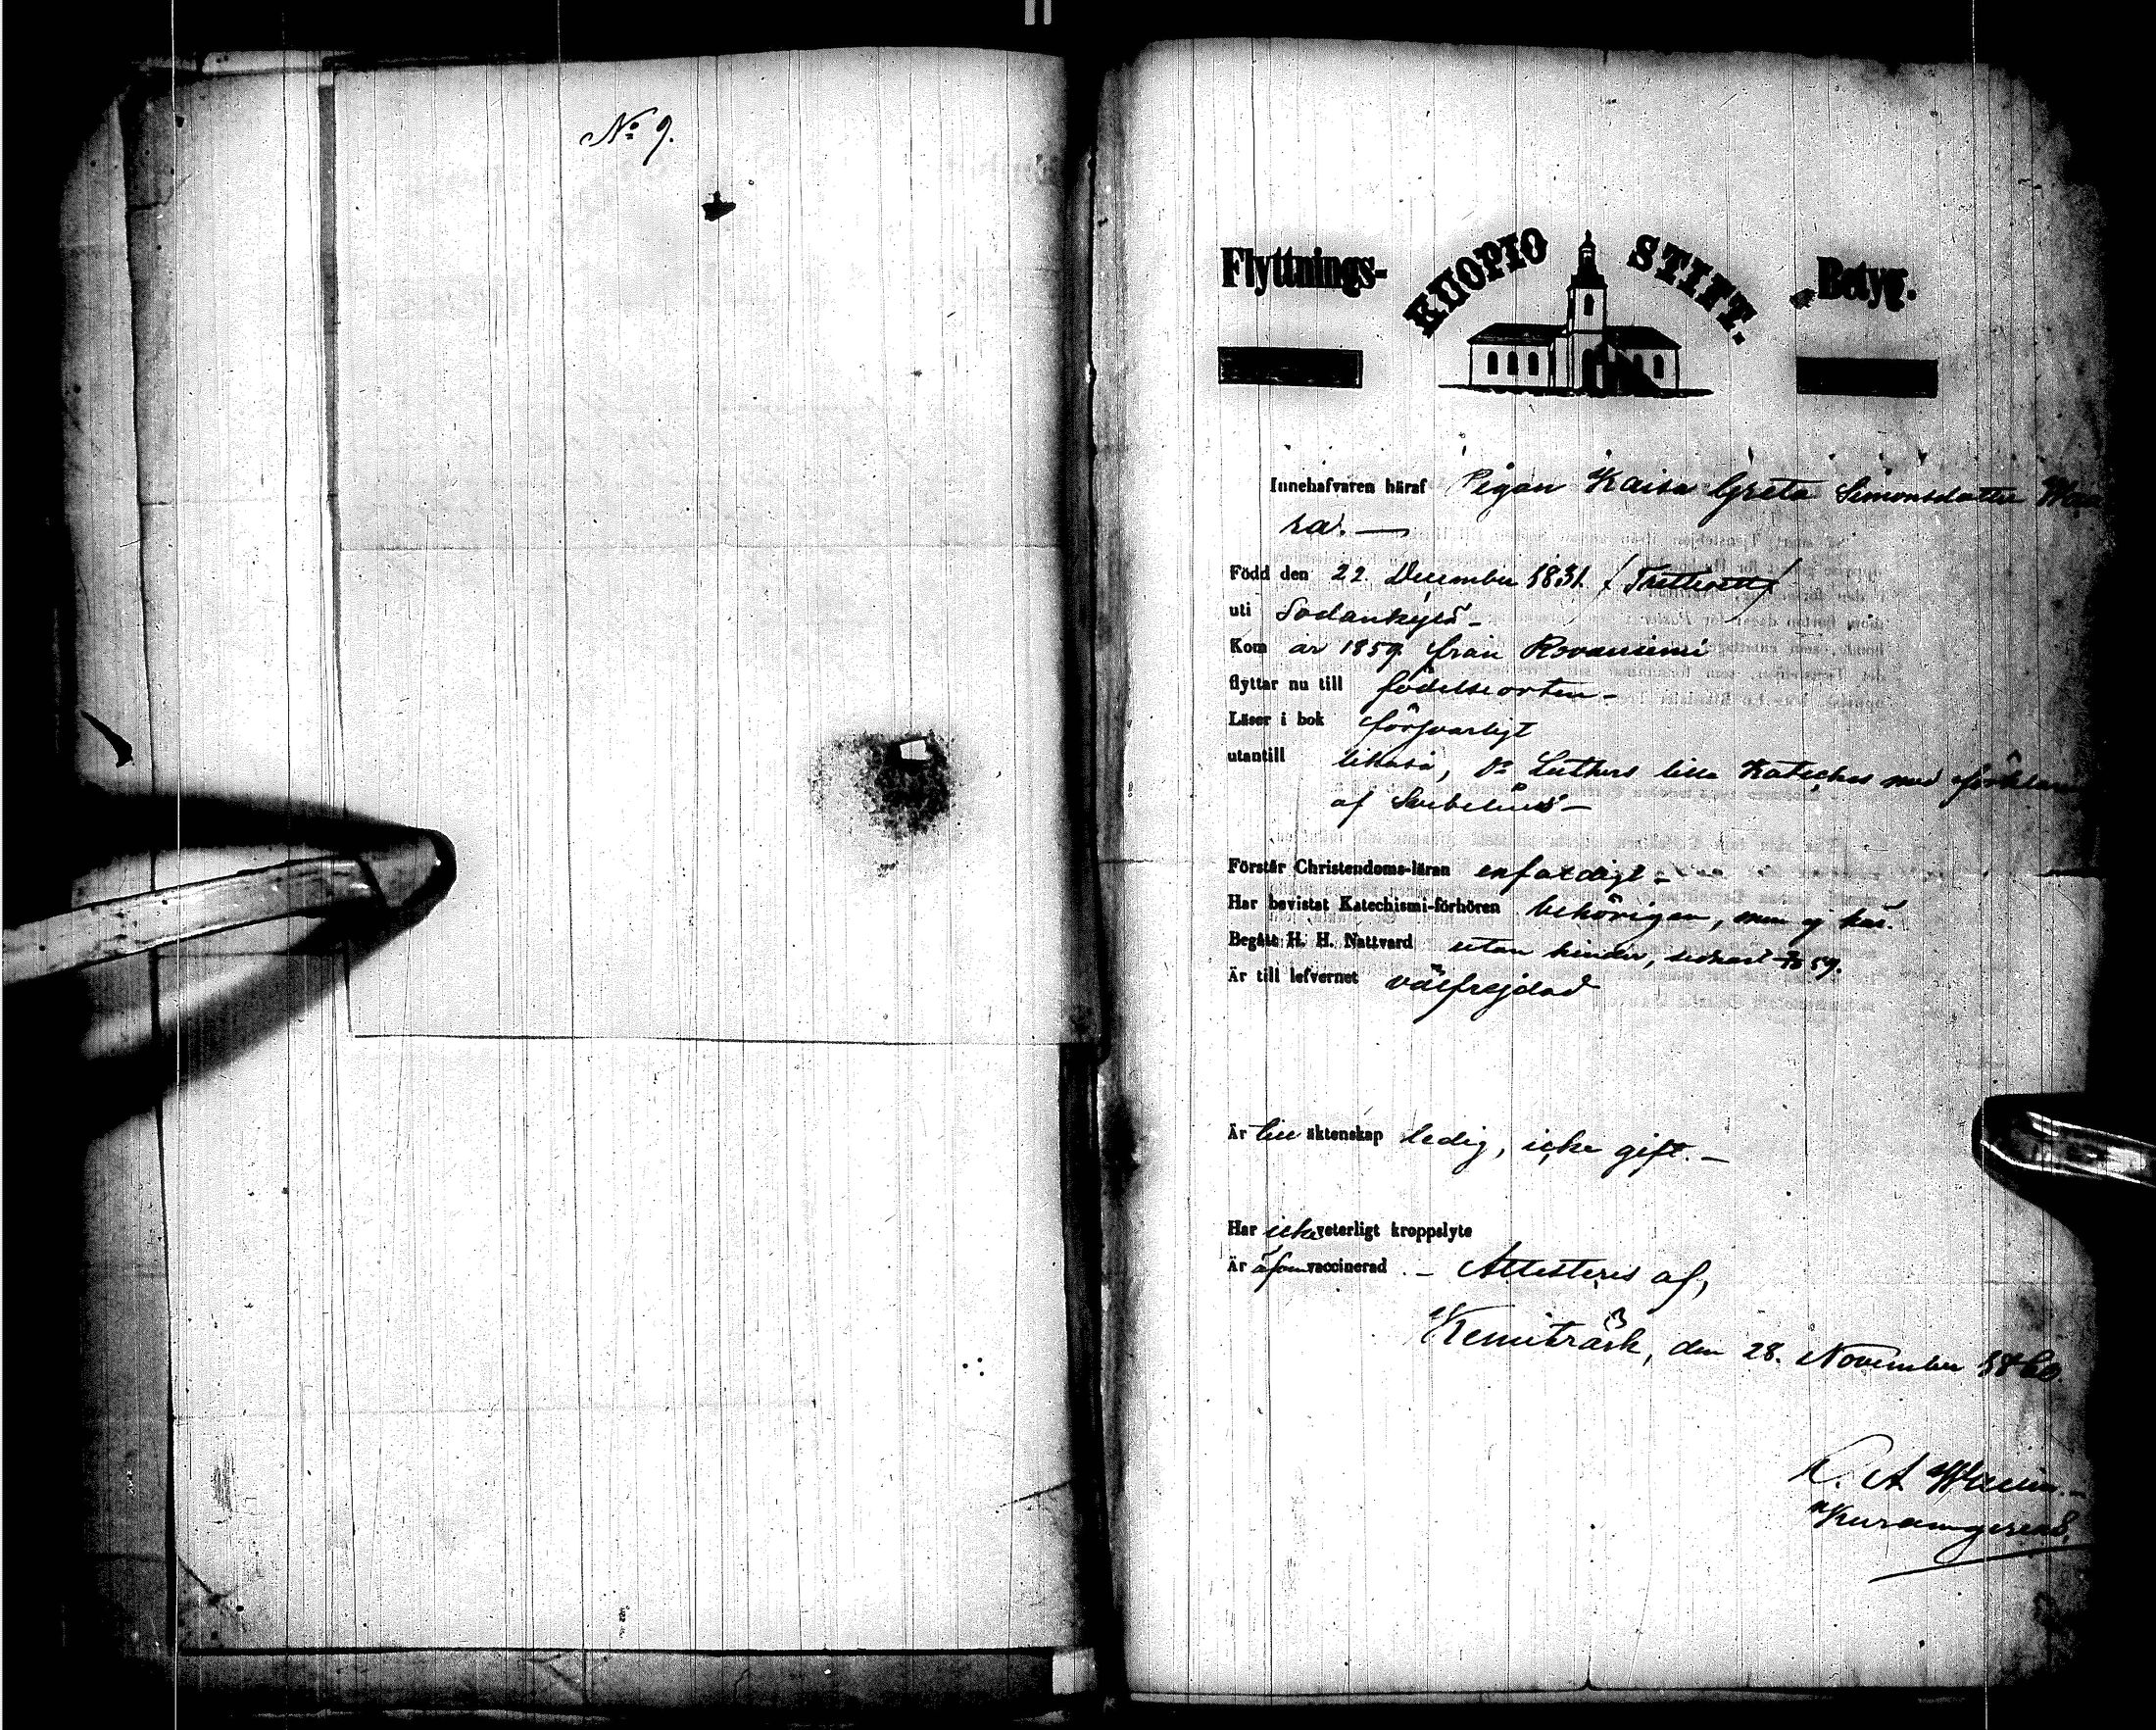 No 9.
Flyttnings- KUOPIO STIFT. Betyg.
Innehafvaren häraf Pigan Kaisa Greta Simonsdotter
ra. —
Född den 22 December 1831. (Trettioett)
uti Sodankylä -
Kom år 1859 från Rovaniemi
flyttar nu till födelseorten -
Läser i bok försvarligt
utantill likaså, Dr Luthers lilla Kateches med
af Svebelius -
Förstår Christendoms-läran enfaldigt -
Har bevistat Katechismi-förhören behörigen, men ej här.
Begått H. H. Nattvard utan hinder, sednast 59.
Är till lefvernet välfrejdad
Är till äktenskap ledig, icke gift. -
Har icke veterligt kroppslyte
Är äfven vaccinerad. - Attesteras af,
Kemiträsk, den 28. November 1860.
A